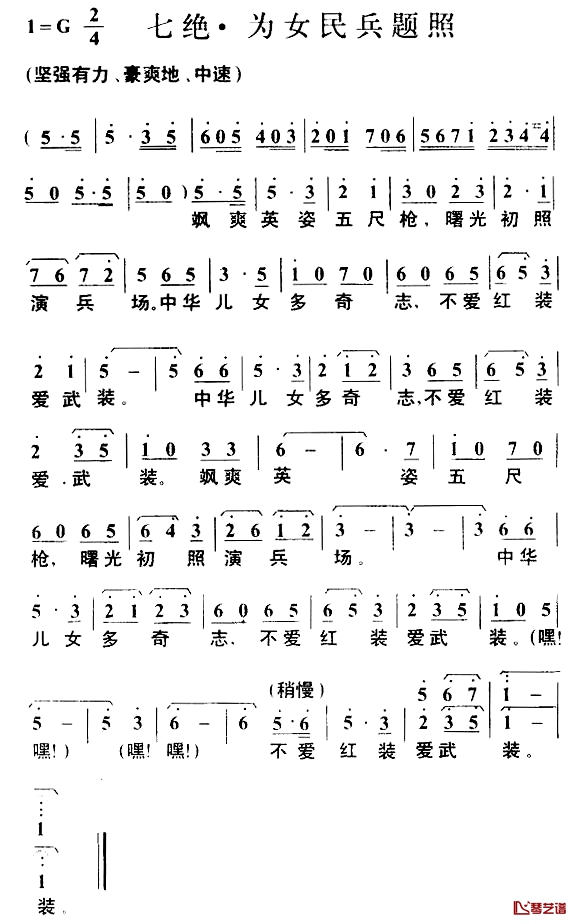 1=G 2/4 七绝·为女民兵题照
(坚强有力、豪爽地、中速)
( 5·5 | 5·3 5 | 605 403 | 201 706 | 5671 2344 |
50 5·5 | 50 ) 5·5 | 5·3 | 2 1 | 30 23 | 2·1 |
飒爽英姿五尺枪,曙光初照
76 72 | 5 65 | 3·5 | 10 70 | 60 65 | 65 3 |
演兵场。中华儿女多奇志,不爱红装
2 1 | 5 – | 5 66 | 5·3 | 2 12 | 3 65 | 65 3 |
爱武装。中华儿女多奇志,不爱红装
2 35 | 10 33 | 6 – | 6·7 | 10 70 |
爱武装。飒爽英姿五尺
60 65 | 64 3 | 26 12 | 3 – | 3 – | 3 66 |
枪,曙光初照演兵场。中华
5·3 | 21 23 | 60 65 | 35 3 | 2 35 | 1 05 |
儿女多奇志,不爱红装爱武装。(嘿!
(稍慢) 5 67 | 1 –
5 – | 5 3 | 6 – | 6 5·6 | 5·3 | 2 35 | 1 – |
嘿!) (嘿!嘿!) 不爱红装爱武装。
1
1
装。
琴艺谱